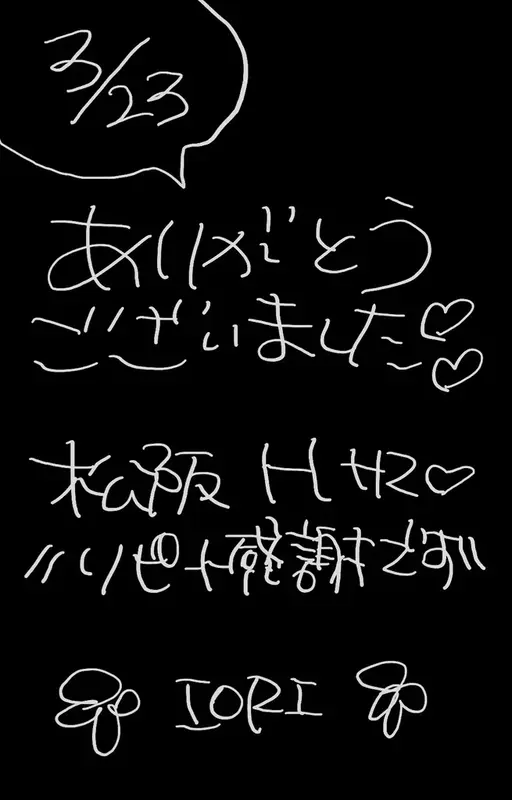 3/23
ありがとう
ございました♡♡
松阪 Hサマ♡
リピ 感謝です
IORI